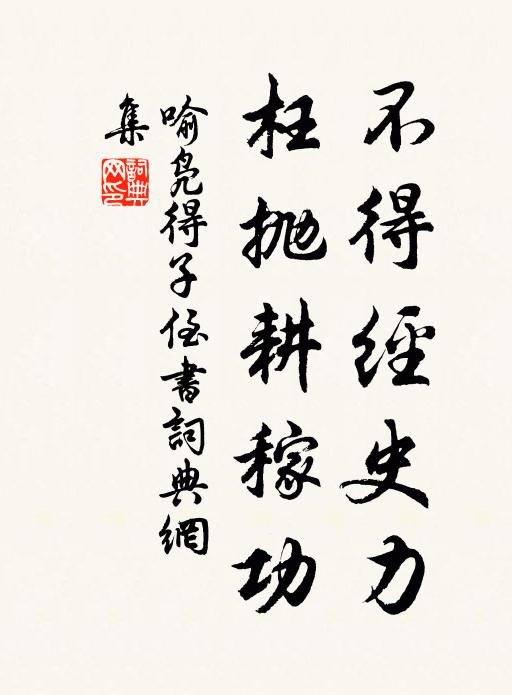 不得經史力
枉抛耕稼功
喻鳧得子侄書詞典網
集
詞典網印